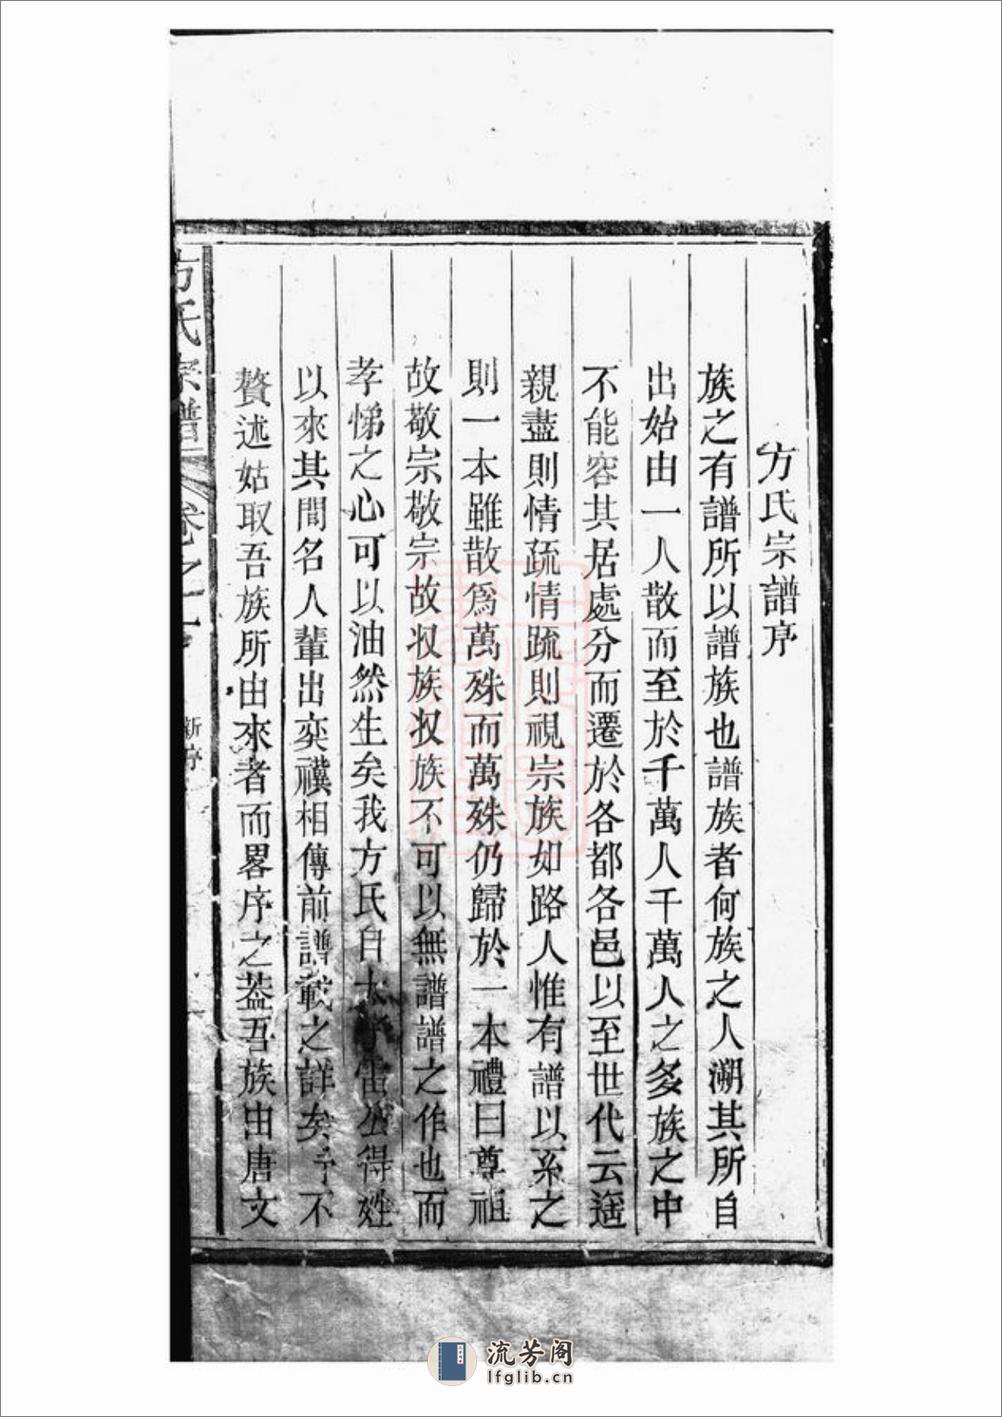 方氏宗譜序
族之有譜所以譜族也譜族者何族之人溯其所自
出始由一人散而至於千萬人千萬人之多族之中
不能容其居處分而遷於各都各邑以至世代云遙
親盡則情疏情疏則視宗族如路人惟有譜以系之
則一本雖散為萬殊而萬殊仍歸於一本禮曰尊祖
故敬宗敬宗故収族収族不可以無譜譜之作也而
孝悌之心可以油然生矣我方氏自雷公得姓
以來其間名人輩出奕禩相傳前譜載之詳矣予不
贅述姑取吾族所由來者而畧序之葢吾族由唐文
方氏宗譜 卷之一 新序
流芳阁
lfglib.cn